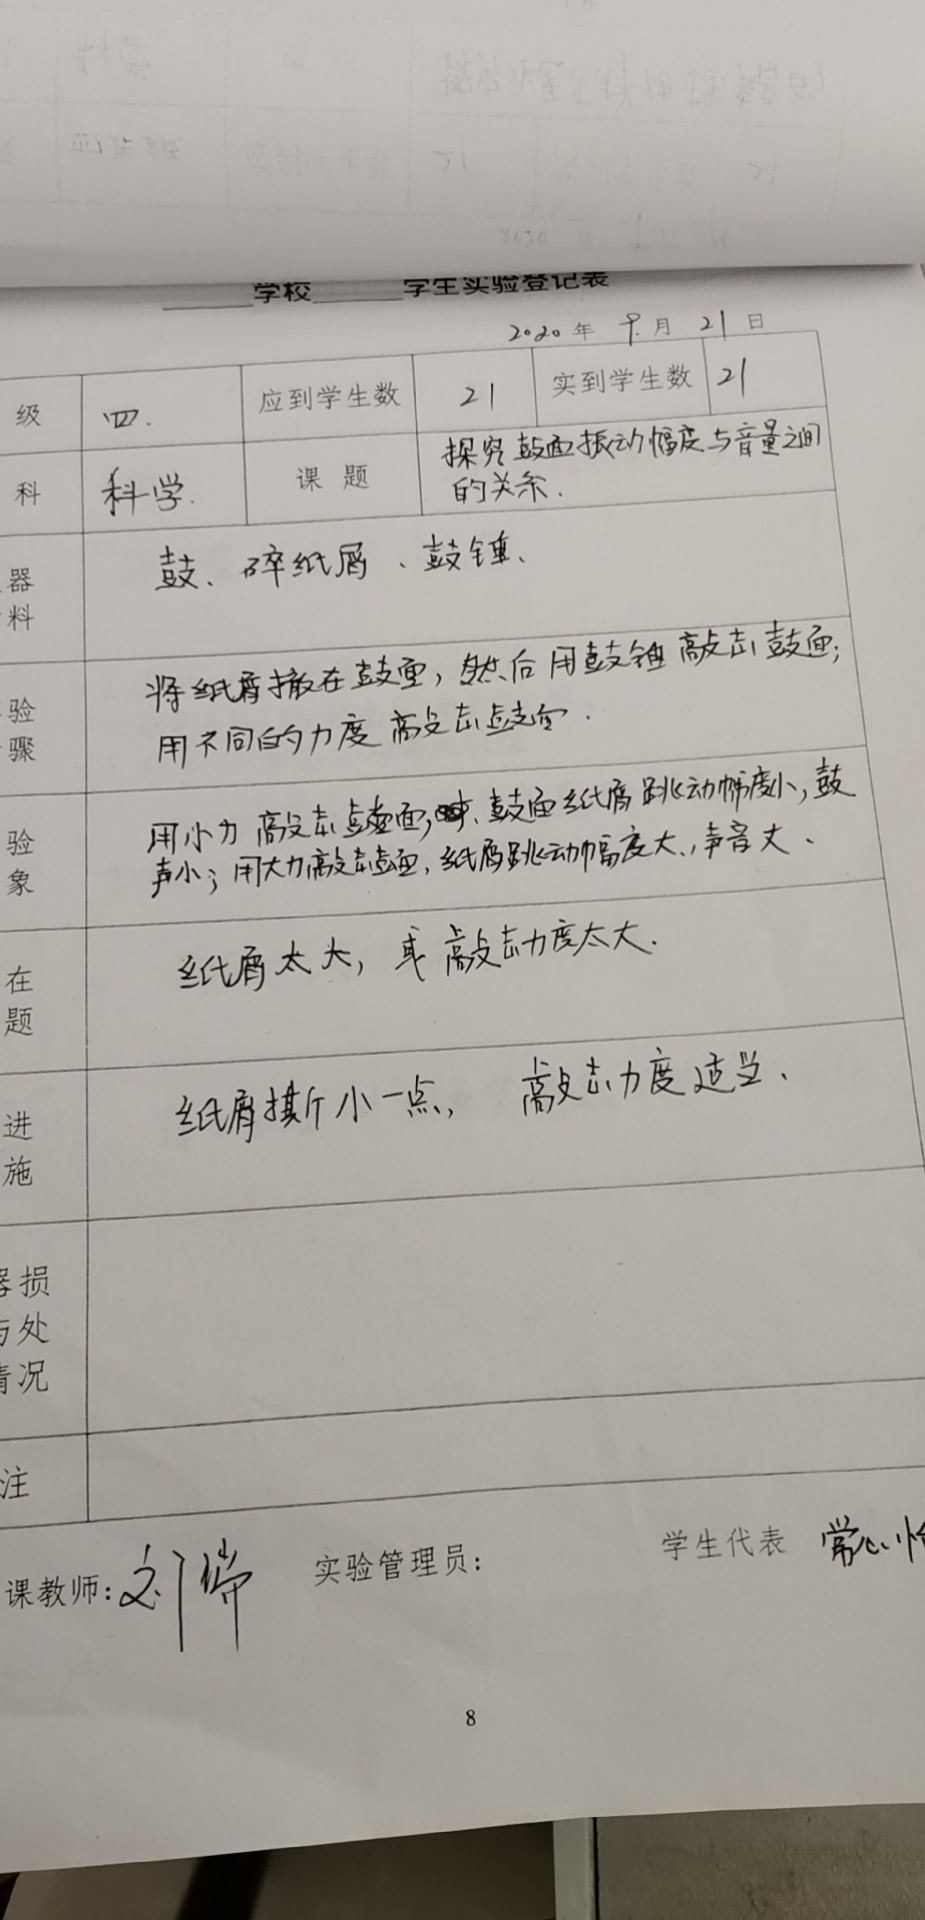 学校 学生实验登记表
2020年 9月 21日
级 四. 应到学生数 21 实到学生数 21
科 科学. 课题 探究鼓面振动幅度与音量之间
的关系.
器
料
鼓、碎纸屑、鼓锤、
验
骤
将纸屑撒在鼓面,然后用鼓锤敲击鼓面;
用不同的力度敲击鼓面.
验
象
用小力敲击鼓面,鼓面纸屑跳动幅度小,鼓
声小;用大力敲击鼓面,纸屑跳动幅度大,声音大.
在
题
纸屑太大,或敲击力度太大.
进
施
纸屑撕小一点,敲击力度适当.
器损
与处
情况
注
课教师: 刘 实验管理员: 学生代表 常心怡
8